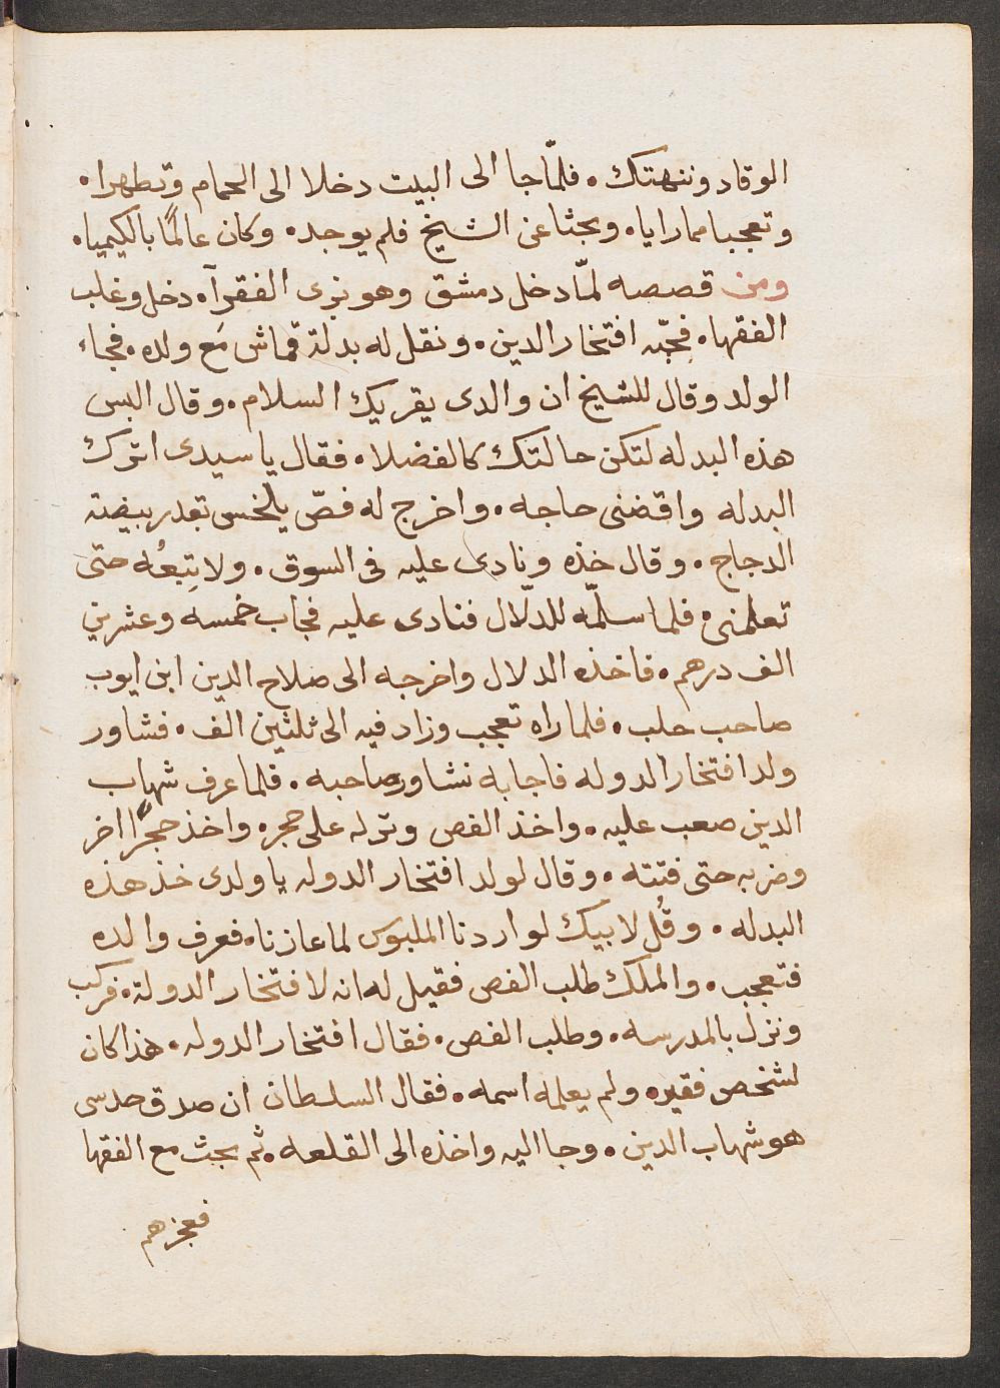 الوقاد وننهتك. فلمّا جا الى البيت دخلا الى الحمام وتطهرا.
وتعجبا مما رايا. وبحثا عن الشيخ فلم يوجد. وكان عالمًا بالكيميا.
ومن قصصه لمّا دخل دمشق وهو بزى الفقرآ. دخل وغلب
الفقها. فحبّه افتخار الدين. ونقل له بدلة قماش مَع ولده. فجاء
الولد وقال للشيخ ان والدى يقريك السلام. وقال البس
هذه البدله لتكن حالتك كالفضلا. فقال يا سيدى اترك
البدله واقضنى حاجه. واخرج له فصّ بلخس بقدر بيضة
الدجاج. وقال خذه ونادى عليه فى السوق. ولا تِبعُه حتى
تعلمنى. فلما سلّمه للدلّال فنادى عليه فجاب خمسه وعشرين
الف درهم. فاخذه الدلال واخرجه الى صلاح الدين ابن ايوب
صاحب حلب. فلما راه تعجب وزاد فيه الى ثلثين الف. فشاور
ولد افتخار الدوله فاجابه نشاور صاحبه. فلما عرف شهاب
الدين صعب عليه. واخذ الفص وتركه على حجر. واخذ حجرًا اخر
وضربه حتى فتته. وقال لولد افتخار الدوله يا ولدى خذ هذه
البدله. وقُل لابيك لو اردنا الملبوس لما عازنا. فعرف والده
فتعجب. والملك طلب الفص فقيل له انه لافتخار الدولة. فركب
ونزل بالمدرسه. وطلب الفص. فقال افتخار الدوله. هذا كان
لشخص فقير. ولم يعلمه اسمه. فقال السلطان ان صدق حدسى
هو شهاب الدين. وجا اليه واخذه الى القلعه. ثم بحث مع الفقها
فعجزهم